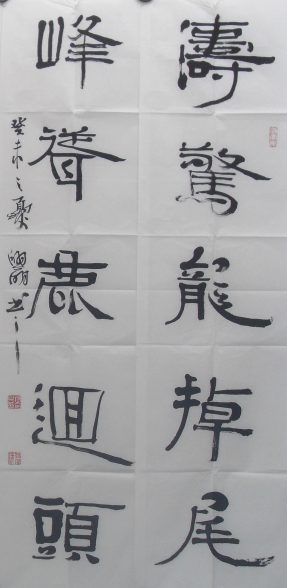 濤驚龍掉尾
峰聳鹿迴頭
癸未之夏